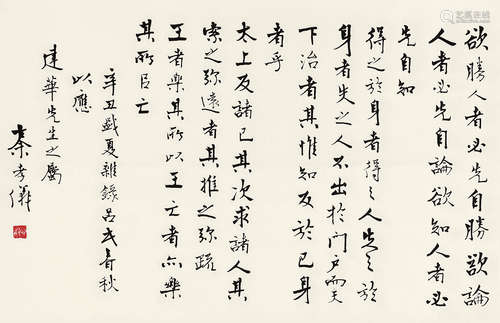 欲勝人者必先自勝欲論
人者必先自論欲知人者必
先自知
得之於身者得之人失之於
身者失之人不出於門戶而天
下治者其惟知反於己身
者乎
太上反諸己其次求諸人其
索之弥遠者其推之弥疏
王者樂其所以王亡者亦樂
其所以亡
辛丑歲夏雜錄呂氏春秋
以應
建華先生之屬
秦孝儀